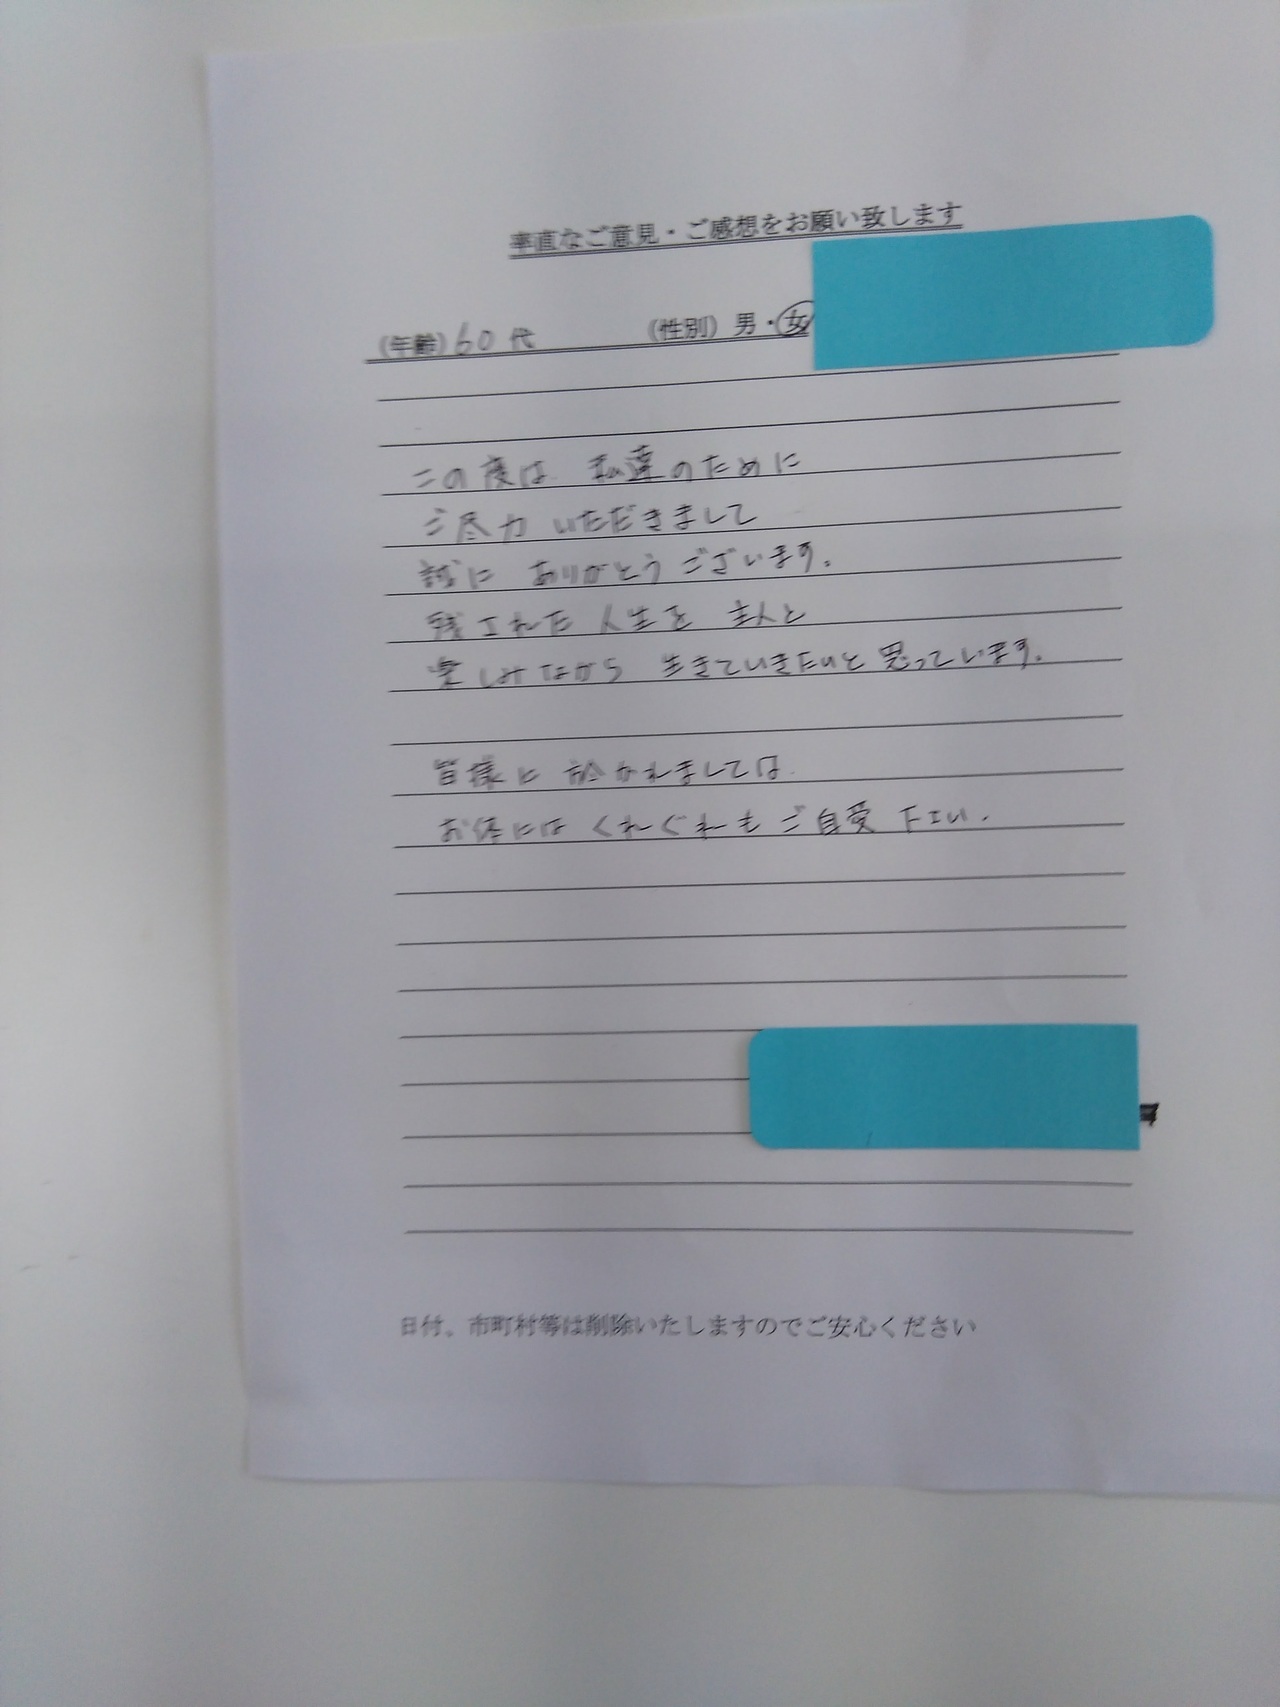 率直なご意見・ご感想をお願い致します
(年齢) 60代 (性別) 男・女
この度は 私達のために
ご尽力いただきまして
誠に ありがとうございます。
残された人生を 主人と
楽しみながら 生きていきたいと思っています。
皆様に於かれましては
お体にはくれぐれもご自愛下さい。
日付、市町村等は削除いたしますのでご安心ください